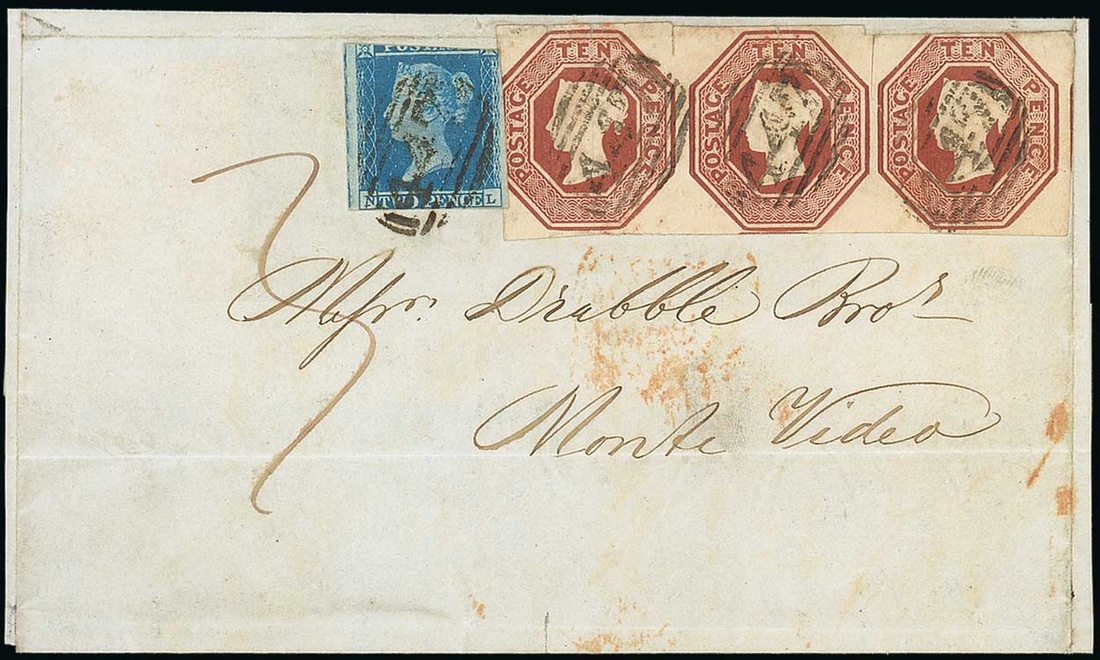 POSTAGE
N TWO PENCE L
POSTAGE TEN PENCE
POSTAGE TEN PENCE
POSTAGE TEN PENCE
Messrs. Drabble Bros
Monte Video